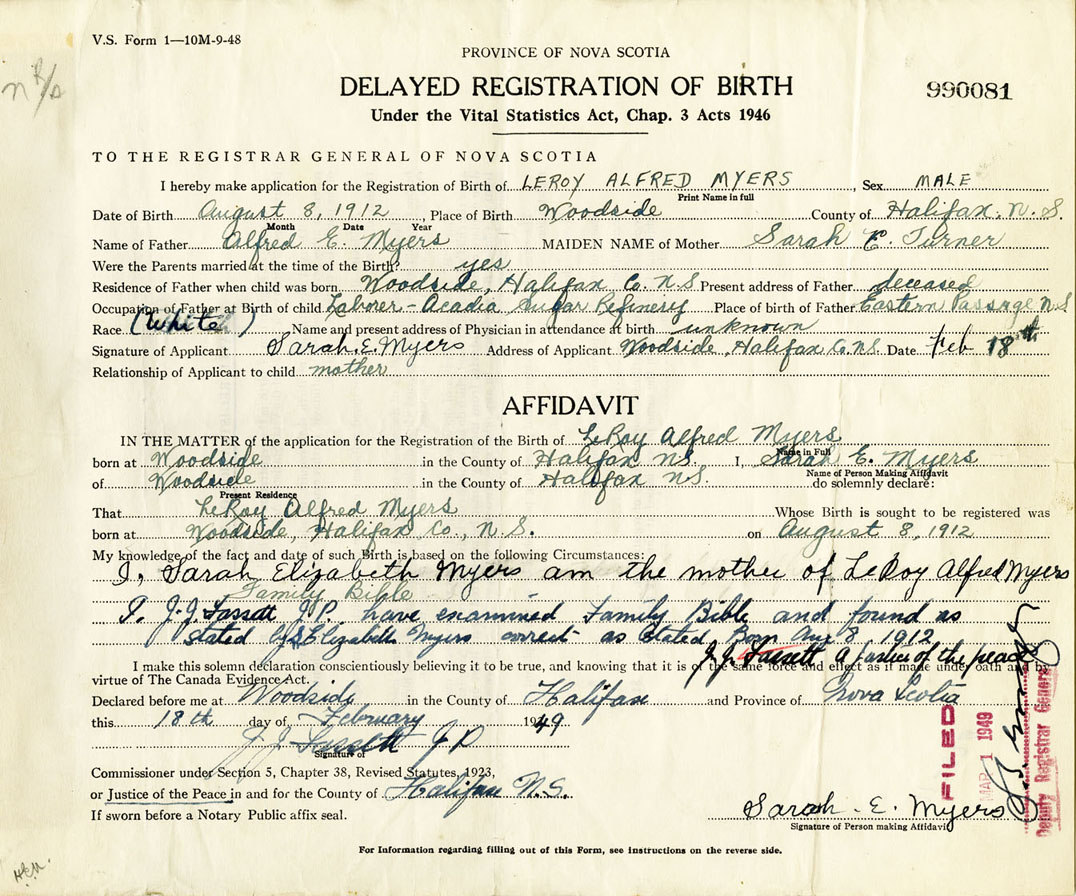 V.S. Form 1—10M-9-48
PROVINCE OF NOVA SCOTIA
DELAYED REGISTRATION OF BIRTH
990081
Under the Vital Statistics Act, Chap. 3 Acts 1946
TO THE REGISTRAR GENERAL OF NOVA SCOTIA
I hereby make application for the Registration of Birth of LEROY ALFRED MYERS, Sex MALE
Print Name in full
Date of Birth August 8, 1912, Place of Birth Woodside County of Halifax, N.S.
Month Date Year
Name of Father Alfred E. Myers MAIDEN NAME of Mother Sarah E. Turner
Were the Parents married at the time of the Birth? yes
Residence of Father when child was born Woodside, Halifax Co. N.S Present address of Father deceased
Occupation of Father at Birth of child Laborer - Acadia Sugar Refinery Place of birth of Father Eastern Passage, N.S
Race (White) Name and present address of Physician in attendance at birth unknown
Signature of Applicant Sarah. E. Myers Address of Applicant Woodside, Halifax Co. N.S. Date Feb 18th
Relationship of Applicant to child mother
AFFIDAVIT
IN THE MATTER of the application for the Registration of the Birth of LeRoy Alfred Myers
Name in Full
born at Woodside in the County of Halifax N.S. I, Sarah E. Myers
Name of Person Making Affidavit
of Woodside in the County of Halifax N.S. do solemnly declare:
Present Residence
That LeRoy Alfred Myers Whose Birth is sought to be registered was
born at Woodside, Halifax Co., N.S. on August 8, 1912
My knowledge of the fact and date of such Birth is based on the following Circumstances:
I, Sarah Elizabeth Myers am the mother of LeRoy Alfred Myers
Family Bible
I. J.J. Fassett J.P. have examined Family Bible and found as
stated by Elizabeth Myers correct as stated Born Aug 8 1912
J.J. Fassett A Justice of the peace
I make this solemn declaration conscientiously believing it to be true, and knowing that it is of the same force and effect as if made under oath and by
virtue of The Canada Evidence Act.
Declared before me at Woodside in the County of Halifax and Province of Nova Scotia
this 18th day of February 1949
J.J. Fassett J P
Signature of
Commissioner under Section 5, Chapter 38, Revised Statutes, 1923,
or Justice of the Peace in and for the County of Halifax N.S.
If sworn before a Notary Public affix seal.
Sarah. E. Myers
Signature of Person making Affidavit
FILED
MAR 1 1949
Deputy Registrar General
For Information regarding filling out of this Form, see instructions on the reverse side.